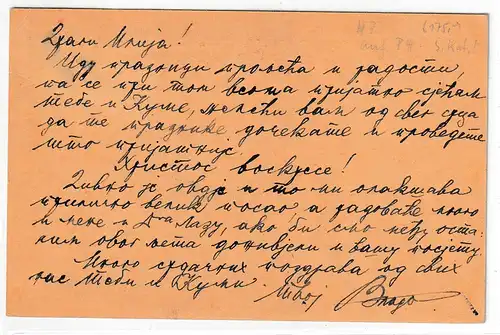 Драги Илија!
Иду празници прољећа и радости,
па се при том веома пријатно сјећам
тебе и Куме, желећи вам од свег срца
да те празнике дочекате и проведете
што пријатније.
Христос воскресе!
Живко је овдје и то ми олакшава
прилично велики посао а радоваће много
и мене и Д-ра Лазу, ако би смо међу оста-
лим овог љета доживјели и вашу посјету.
Много срдачних поздрава од свих
нас Теби и Куми. Твој Владо